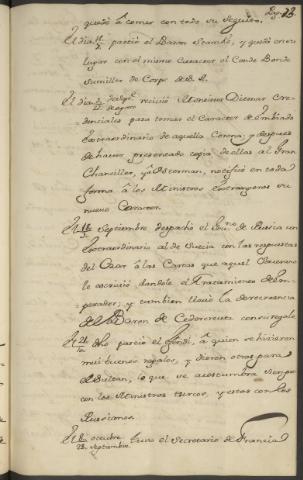 quedó à comer con todo su seguito.
El dia 11/2 partió el Baron Sramks, y quedó en su
lugar con el mismo Caracter el Conde Bonde
Sumiller de Corps de S. A.
El dia reciuió Monsieur Ditmar Cre-
denciales para tomar el Caracter de Embiado
Extraordinario de aquella Corona, y despues
de hauer presentado copia de ellas al Gran
Chanciller, y à Osterman, notificó en toda
forma à los Ministros extrangeros su
nuevo Caracter.
El Septiembre despachó el de Rusia un
Extraordinario al de Suecia con las respuestas
del Czar à las Cartas que aquel Soberano
le escriuió, dandole el Tratamiento de Em-
perador; y tambien lleuó la
del Baron de Cedercreutz con su regalo
El dho partió el à quien se hicieron
mui buenos regalos, y dieron otros para
el Sultan, lo que se acostumbra siempre
con los Ministros turcos, y estos con los
Rusianos.
El 8 octubre / 28 septiembre tuvo el Secretario de Francia